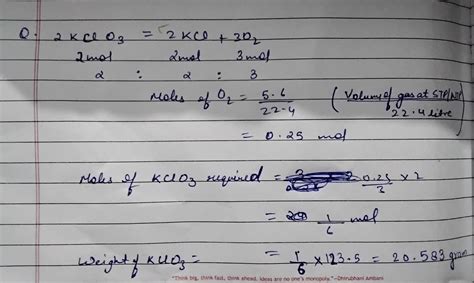 Q. 2KClO3 = 2KCl + 3O2
2mol 2mol 3mol
2 : 2 : 3
Moles of O2 = 5.6/22.4 (Volume of gas at STP/NTP 22.4 litre)
= 0.25 mol
Moles of KClO3 required = 0.25/3 × 2
= 1/6 mol
Weight of KClO3 = = 1/6 × 123.5 = 20.583 gram
"Think big, think fast, think ahead. Ideas are no one's monopoly."–Dhirubhai Ambani